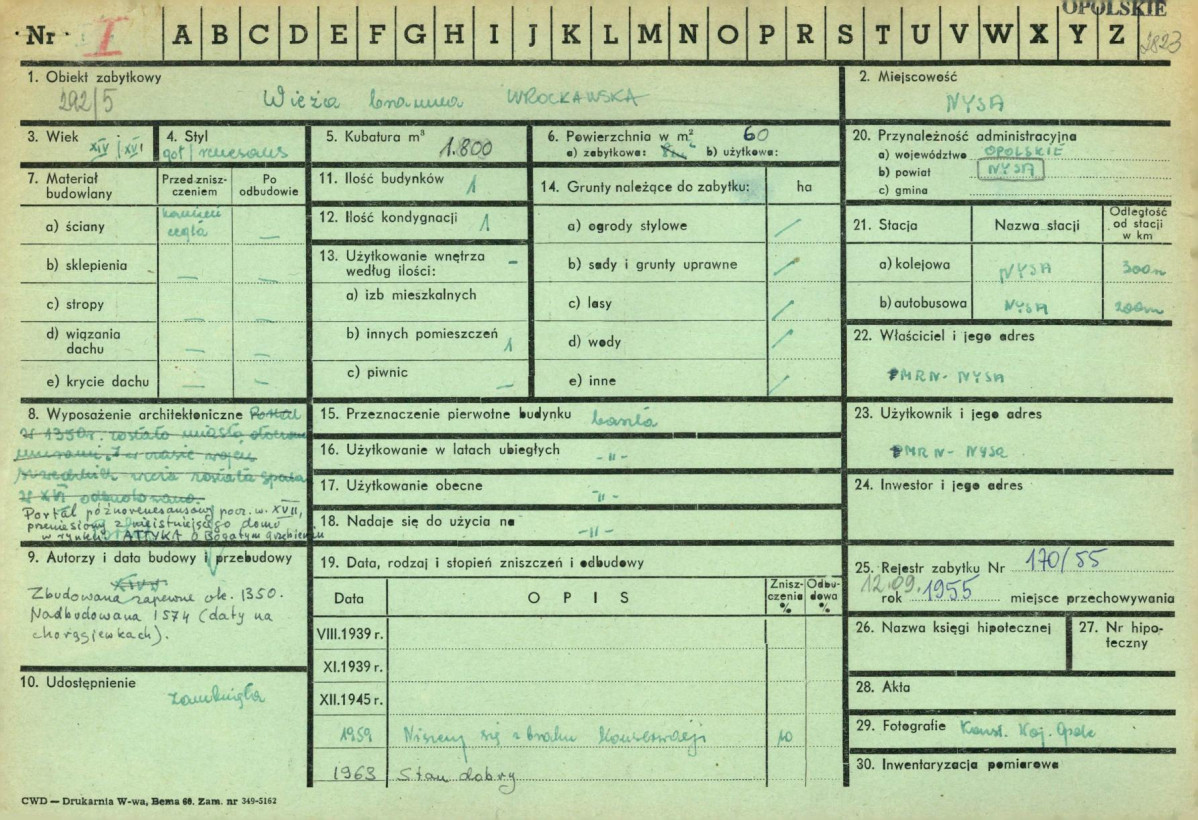 OPOLSKIE
Nr I A B C D E F G H I J K L M N O P R S T U V W X Y Z 2823
1. Obiekt zabytkowy
292/5 Wieża brama WROCŁAWSKA
2. Miejscowość
NYSA
3. Wiek
XIV/XVI
4. Styl
got/renesans
5. Kubatura m³
1.800
6. Powierzchnia w m²
60
a) zabytkowa: b) użytkowa:
7. Materiał budowlany
Przed znisz-
czeniem
Po
odbudowie
a) ściany kamień
cegła —
b) sklepienia — —
c) stropy — —
d) wiązania
dachu — —
e) krycie dachu — —
8. Wyposażenie architektoniczne Portal
w 1350r. zostało miasto otoczone
murami. I w czasie wojen
w XVI odbudowano
Portal późnorenesansowy pocz. w. XVII,
przeniesiony z nieistniejącego domu
w rynku. ATTYKA o Bogatym grzebieniu
9. Autorzy i data budowy i przebudowy
XIV
Zbudowana zapewne ok. 1350.
Nadbudowana 1574 (daty na
chorągiewkach).
10. Udostępnienie
zamknięta
11. Ilość budynków 1
12. Ilość kondygnacji 1
13. Użytkowanie wnętrza
według ilości: –
a) izb mieszkalnych
b) innych pomieszczeń 1
c) piwnic —
14. Grunty należące do zabytku: ha
a) ogrody stylowe /
b) sady i grunty uprawne /
c) lasy /
d) wody /
e) inne /
15. Przeznaczenie pierwotne budynku baszta
16. Użytkowanie w latach ubiegłych –"–
17. Użytkowanie obecne –"–
18. Nadaje się do użycia na –"–
19. Data, rodzaj i stopień zniszczeń i odbudowy
Data O P I S Znisz-
czenia
% Odbu-
dowa
%
VIII.1939 r.
XI.1939 r.
XII.1945 r.
1959 Niszczeje się z braku Konserwacji 10
1963 Stan dobry
20. Przynależność administracyjna
a) województwo OPOLSKIE
b) powiat NYSA
c) gmina
21. Stacja Nazwa stacji Odległość
od stacji
w km
a) kolejowa NYSA 300m
b) autobusowa NYSA 200m
22. Właściciel i jego adres
PMRN - NYSA
23. Użytkownik i jego adres
PMRN - NYSA
24. Inwestor i jego adres
25. Rejestr zabytku Nr 170/55
12.09.
rok 1955 miejsce przechowywania
26. Nazwa księgi hipotecznej
27. Nr hipo-
teczny
28. Akta
29. Fotografie Konst. Woj. Opole
30. Inwentaryzacja pomiarowa
CWD — Drukarnia W-wa, Bema 60. Zam. nr 349-5162